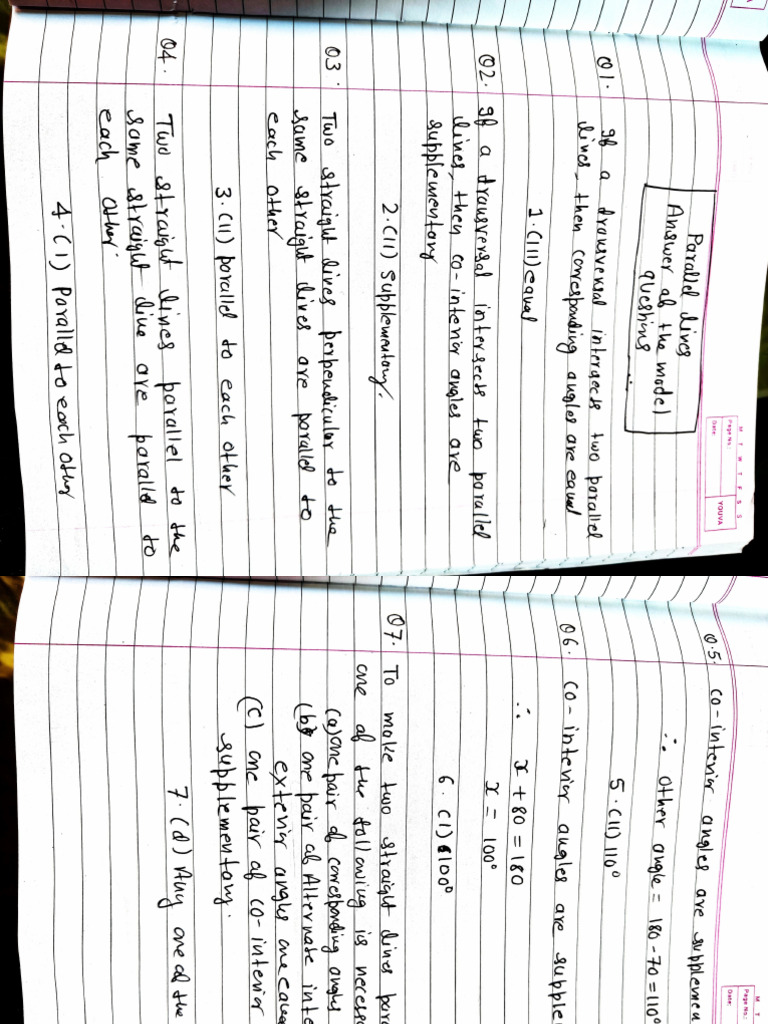 M T W T F S S
Page No.:
Date:
YOUVA
Parallel lines
Answer of the model
questions
Q1. If a transversal intersects two parallel
lines, then corresponding angles are equal
1. (III) equal
Q2. If a transversal intersects two parallel
lines, then co-interior angles are
supplementory
2. (II) supplementory.
Q3. Two straight lines perpendicular to the
same straight lines are parallel to
each other
3. (II) parallel to each other
Q4. Two straight lines parallel to the
same straight line are parallel to
each other.
4. (I) Parallel to each other
M T
Page No.:
Date:
Q.5. co-interior angles are supplemen
∴ other angle = 180-70=110°
5. (II) 110°
Q6. co-interior angles are supple
∴ x + 80 = 180
x = 100°
6. (I) 100°
Q7. To make two straight lines para
one of the following is necess
(a) one pair of corresponding angles
(b) one pair of Alternate inte
exterior angles are equa
(c) one pair of co-interior
supplementory.
7. (d) Any one of the